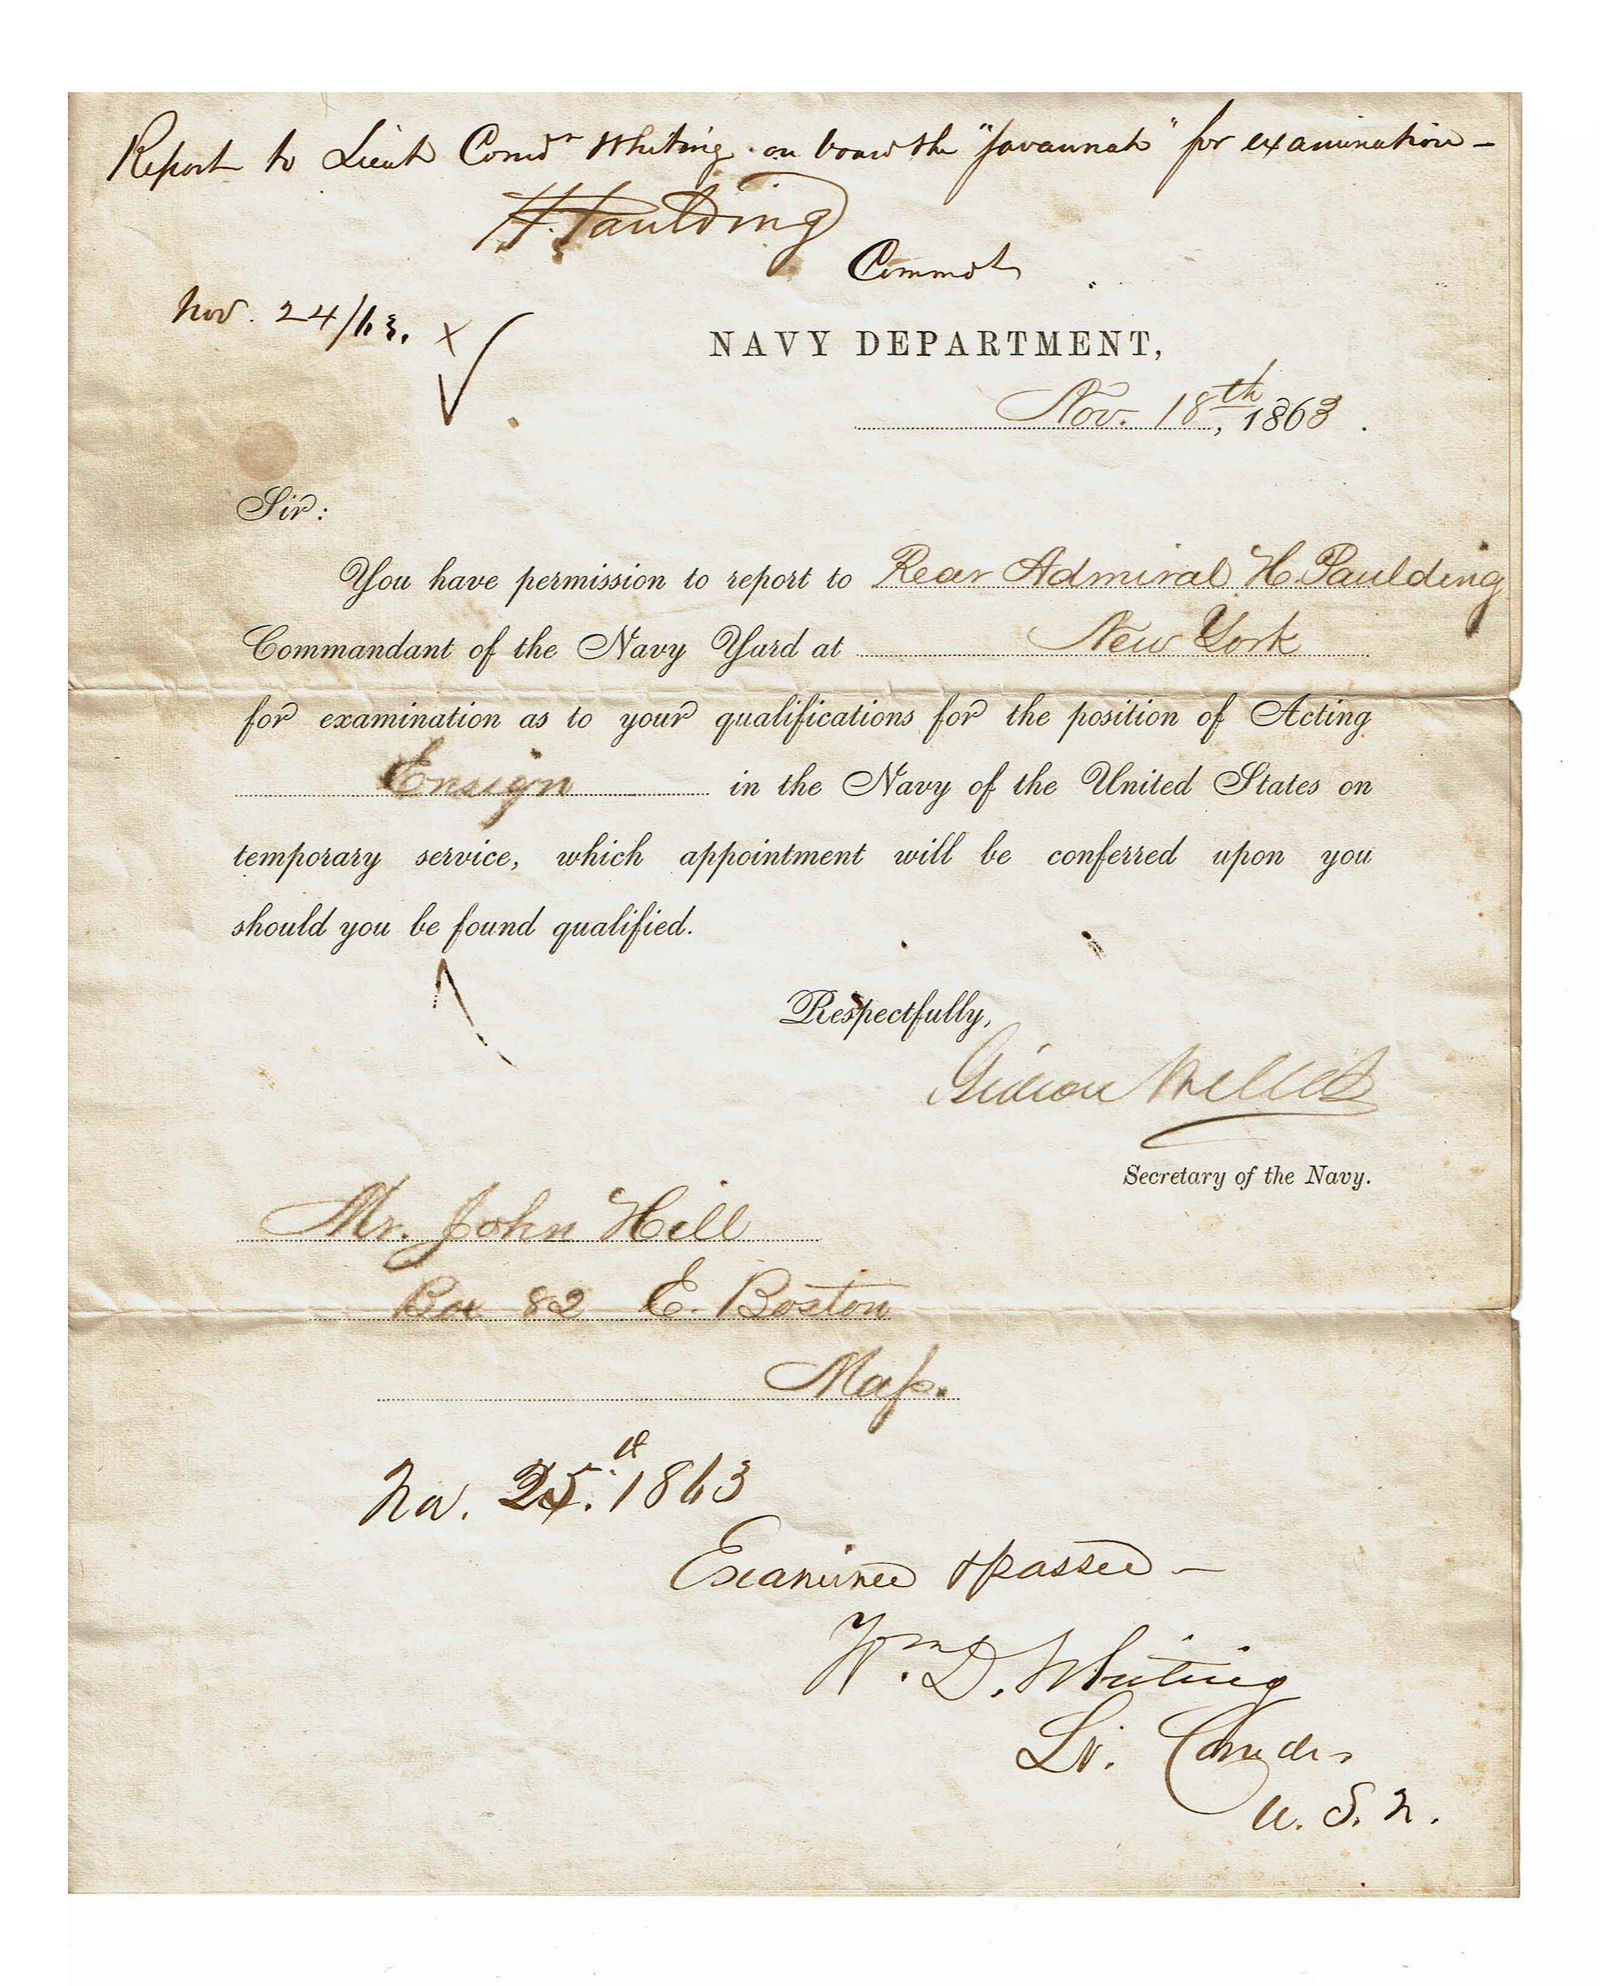 Report to Lieut Comdr Whiting on board the "Savannah" for examination –
H. Paulding
Commdt
Nov. 24/63. x
NAVY DEPARTMENT,
Nov. 18th, 1863.
Sir:
You have permission to report to Rear Admiral H. Paulding
Commandant of the Navy Yard at New York
for examination as to your qualifications for the position of Acting
Ensign in the Navy of the United States on
temporary service, which appointment will be conferred upon you
should you be found qualified.
Respectfully,
Gideon Welles
Secretary of the Navy.
Mr. John Hill
Box 82 E. Boston
Mass.
Nov. 25.th 1863
Examined & passed –
Wm. D. Whiting
Lt. Comdr
U. S. N.